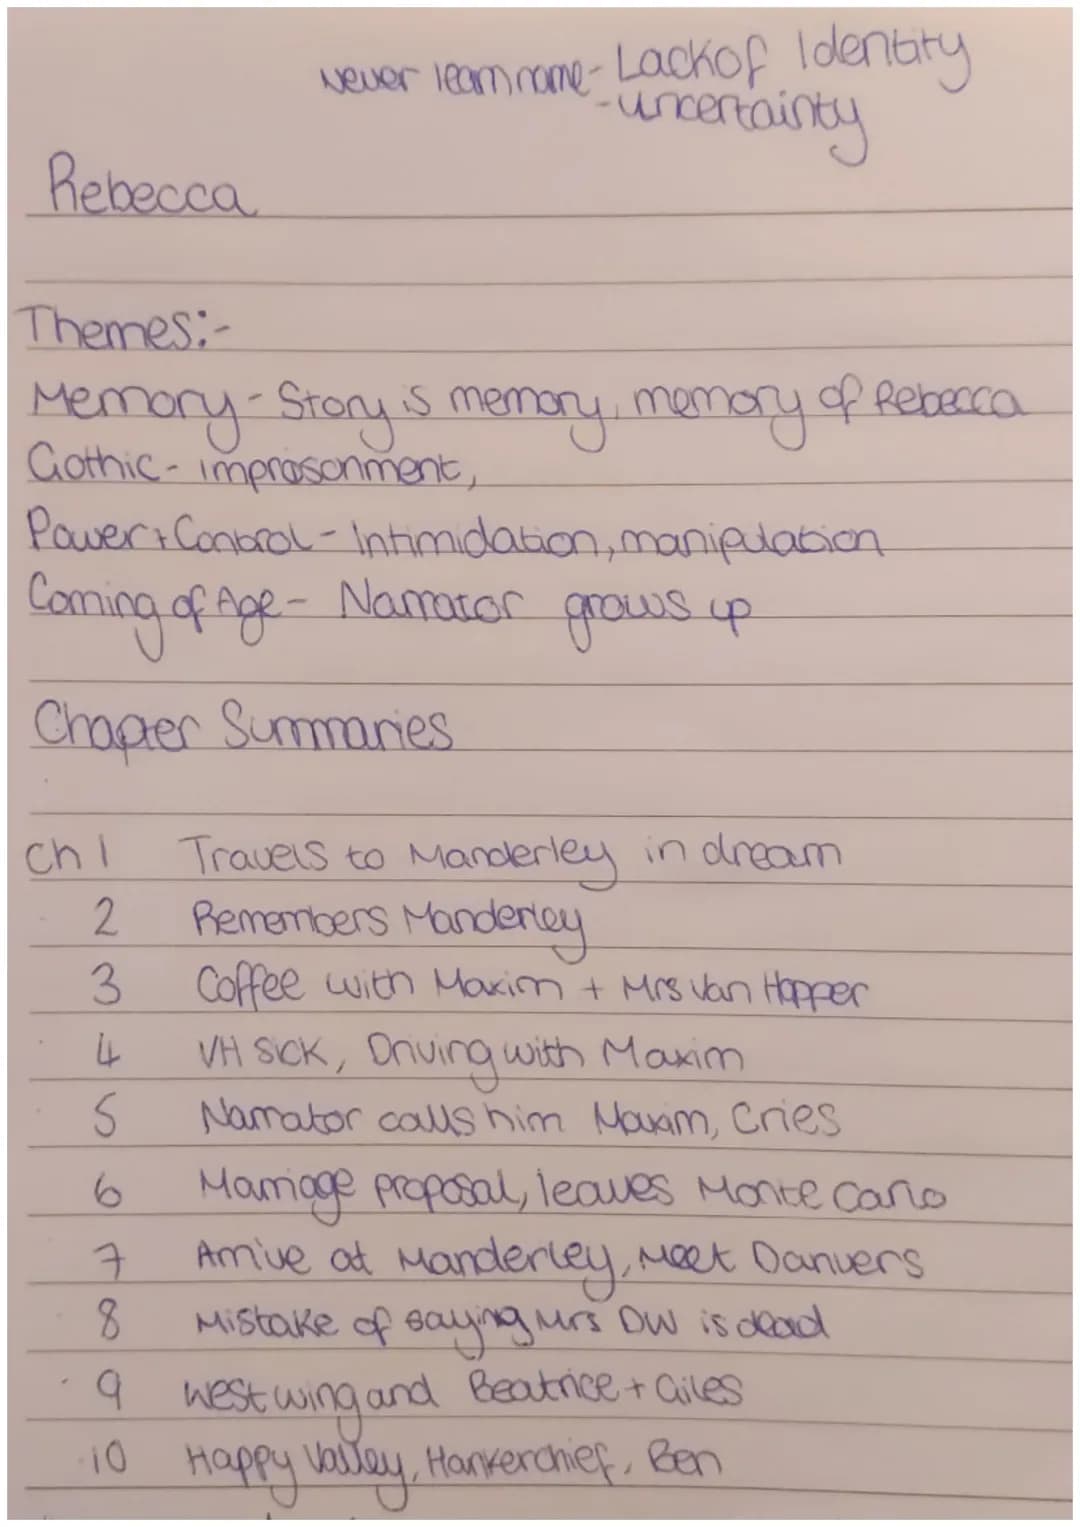 Never learn name - Lack of Identity
- uncertainty
Rebecca
Themes:-
Memory - Story is memory, memory of Rebecca
Gothic - improsonment,
Power + Control - Intimidation, manipulation
Coming of Age - Narrator grows up
Chapter Summaries
Ch 1 Travels to Manderley in dream
2 Remembers Manderley
3 Coffee with Maxim + Mrs Van Hopper
4 VH sick, Driving with Maxim
5 Narrator calls him Maxim, Cries
6 Marriage proposal, leaves Monte Carlo
7 Arrive at Manderley, Meet Danvers
8 Mistake of saying Mrs DW is dead
9 West wing and Beatrice + Giles
10 Happy Valley, Hankerchief, Ben